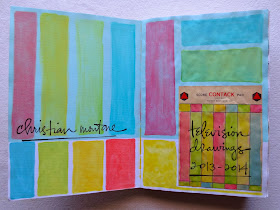 christian montone
CONTACK
television
drawings
2013-2014